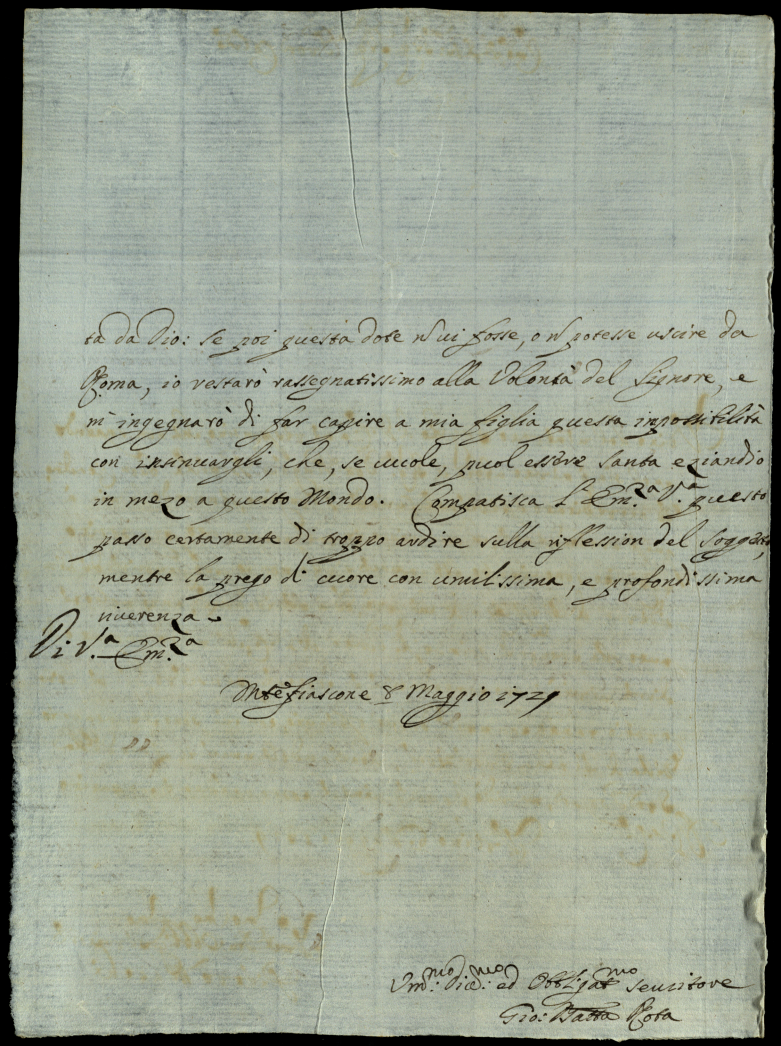 ta da Dio: se poi questa dote nō ui fosse, o nō potesse uscire da
Roma, io restarò rassegnatissimo alla Volontà del Signore, e
m'ingegnarò di far capire a mia figlia questa inpossibilità
con insinuargli, che, se uuole, puol essere santa eziandio
in mezo a questo Mondo. Compatisca l'Em.za V.a questo
passo certamente di troppo ardire sulla riflession del Soggetto,
mentre la prego di cuore con umilissima, e profondissima
riuerenza.
Di V.a Em.za
Mtefiascone 8 Maggio 1729
Vm:mo Diu:mo ed Obbligat:mo Seruitore
Gio: Batta Rota